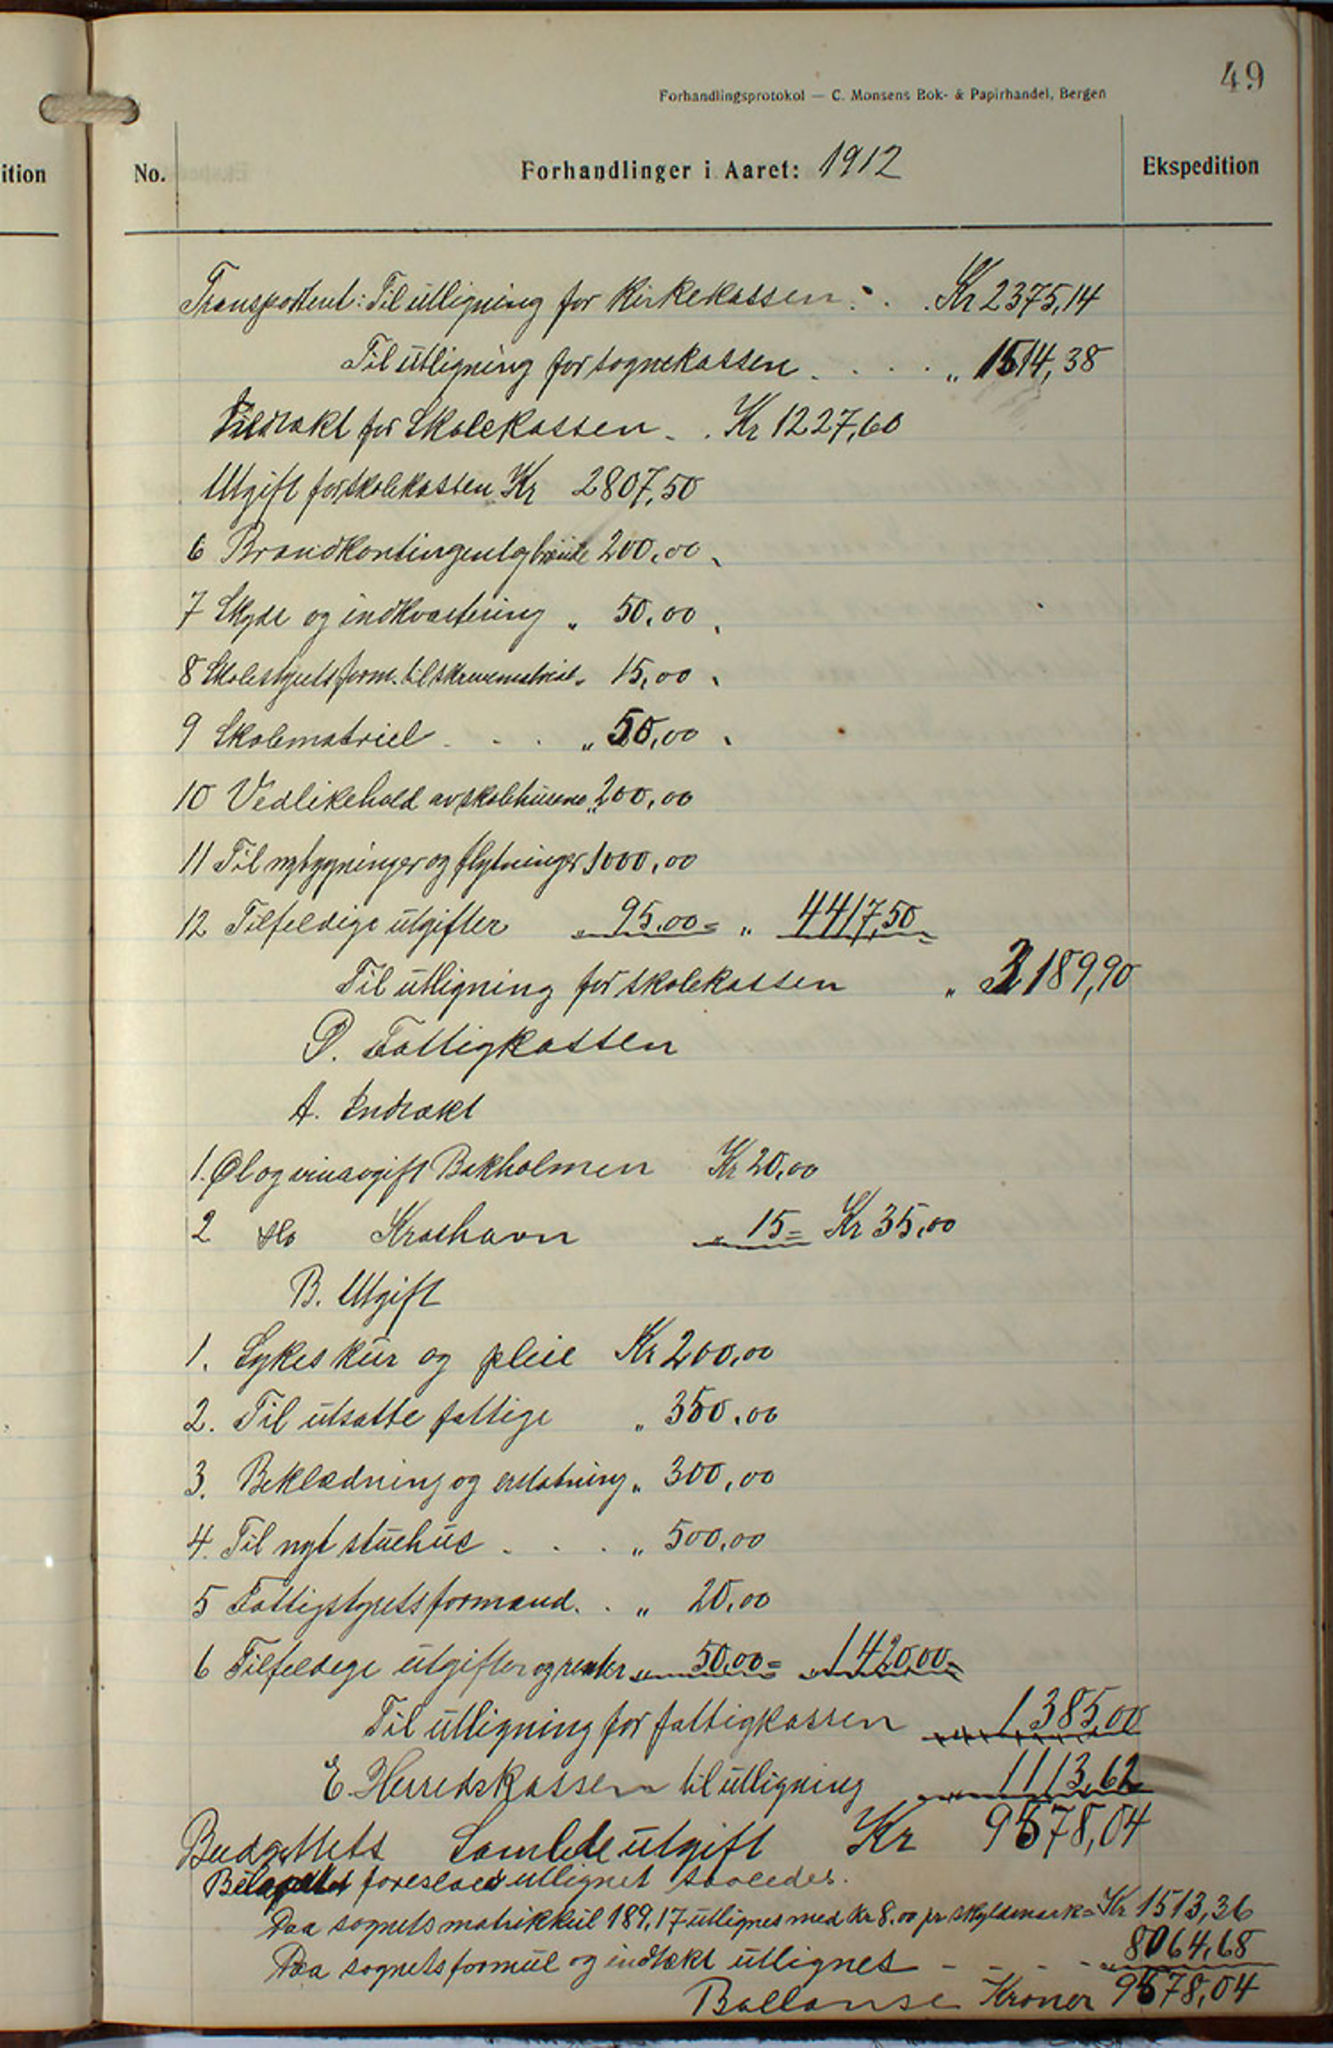 49
Forhandlingsprotokol — C. Monsens Bok- & Papirhandel, Bergen
ition
No.
Forhandlinger i Aaret: 1912
Ekspedition
Transportent: Til utligning for Kirkekassen . . Kr 2375,14
Til utligning for sognekassen . . . . „ 1514,38
Indtækt for Skolekassen . . Kr 1227,60
Utgift for skolekassen Kr 2807,50
6 Brandkontingent og brænde 200,00
7 Skyds og indkvartering „ 50,00
8 Skolestyrets form. til skrivematriel „ 15,00
9 Skolematriel . . . „ 50,00
10 Vedlikehold av skolehusene „ 200,00
11 Til nybygninger og flytninger 1000,00
12 Tilfeldige utgifter „ 95,00 = „ 4417,50
Til utligning for skolekassen „ 3189,90
D. Fattigkassen
A. Indtækt
1. Øl og vinavgift Bakholmen Kr 20,00
2 do Krashavn „ 15 = Kr 35,00
B. Utgift
1. Sykes kur og pleie Kr 200,00
2. Til utsatte fattige „ 350,00
3. Beklædning og erstatning „ 300,00
4. Til nyt stuehus . . . „ 500,00
5 Fattigstyrets formand . . „ 20,00
6 Tilfeldige utgifter og renter „ 50,00 = „ 1420,00
Til utligning for fattigkassen „ 1385,00
E. Herredskassen til utligning „ 1113,62
Budgettets Samlede utgift Kr 9578,04
foreslaaes utlignet saaledes.
Paa sognets matrikkul 189,17 utlignes med Kr 8,00 pr skyldmark = Kr 1513,36
Paa sognets formue og indtækt utlignes - - - - „ 8064,68
Ballanse Kroner 9578,04